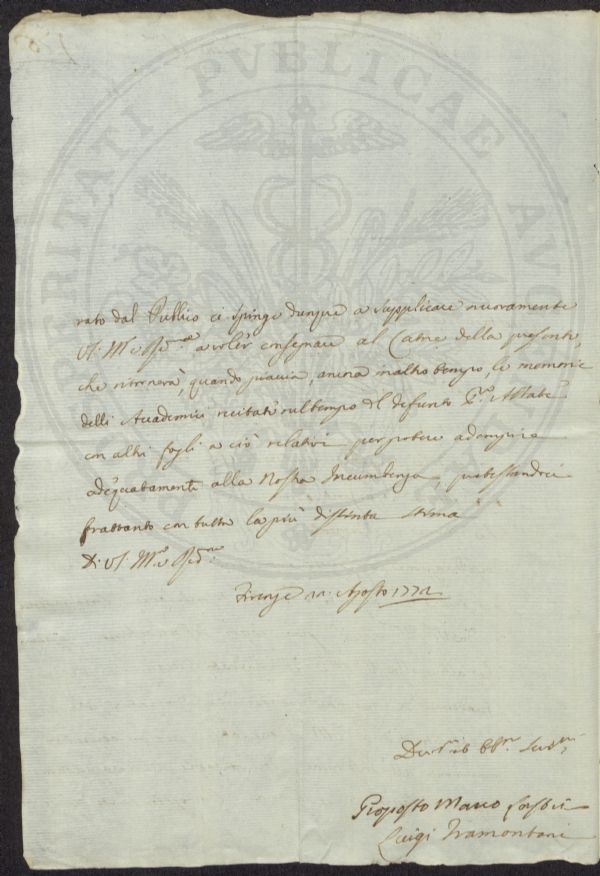 PROSPERITATI PVBLICAE AV
rato dal Publico ci spinge dunque a supplicare nuovamente
VS. M.to Rd.a a voler consegnare al Lator della presente,
che ritornerà, quando piaccia, ancora in altro tempo, le memorie
delli Academici recitate sul tempo del defunto Abate
con altri fogli a ciò relativi per potere adempire
adequatamente alla Nostra Incumbenza, protestandoci
frattanto con tutta la più distinta stima
Di VS. M.to Rd.a
Firenze 11 Agosto 1772
Proposto Marco Lastri
Luigi Tramontani